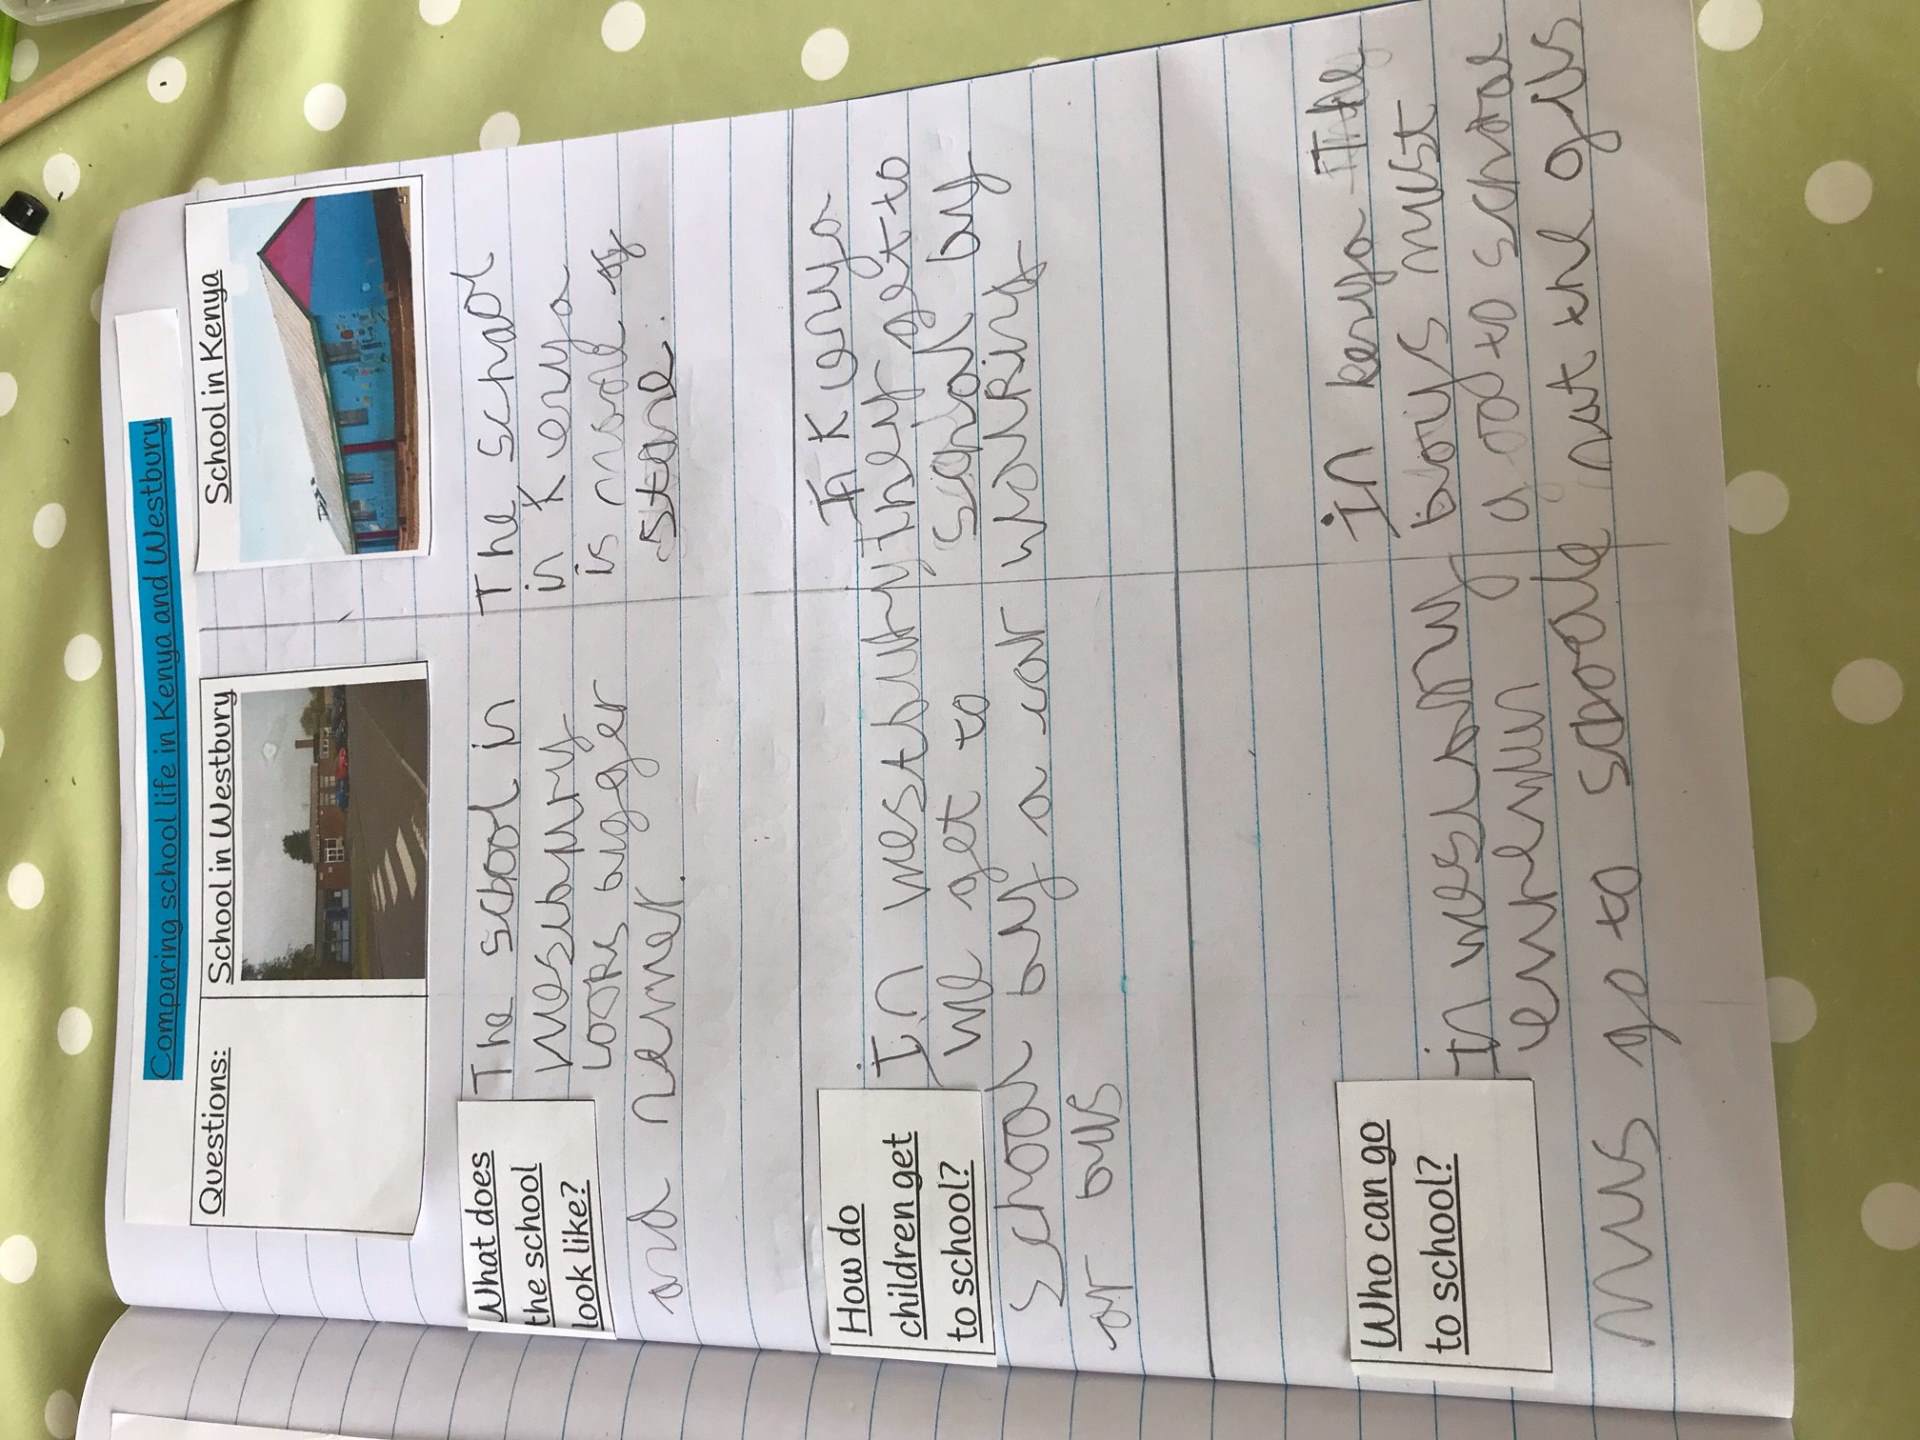 Comparing school life in Kenya and Westbury
Questions:
School in Westbury
School in Kenya
What does
the school
look like?
The school in
wesburry
looks bugger
and newer.
The school
in Kenya
is made of
stone.
How do
children get
to school?
In westbury
we get to
school buy a car
or bus
In Kenya
They get to
school buy
walking
Who can go
to school?
In
mus go to scoole
In kenya The
boys must
to school
not the gils